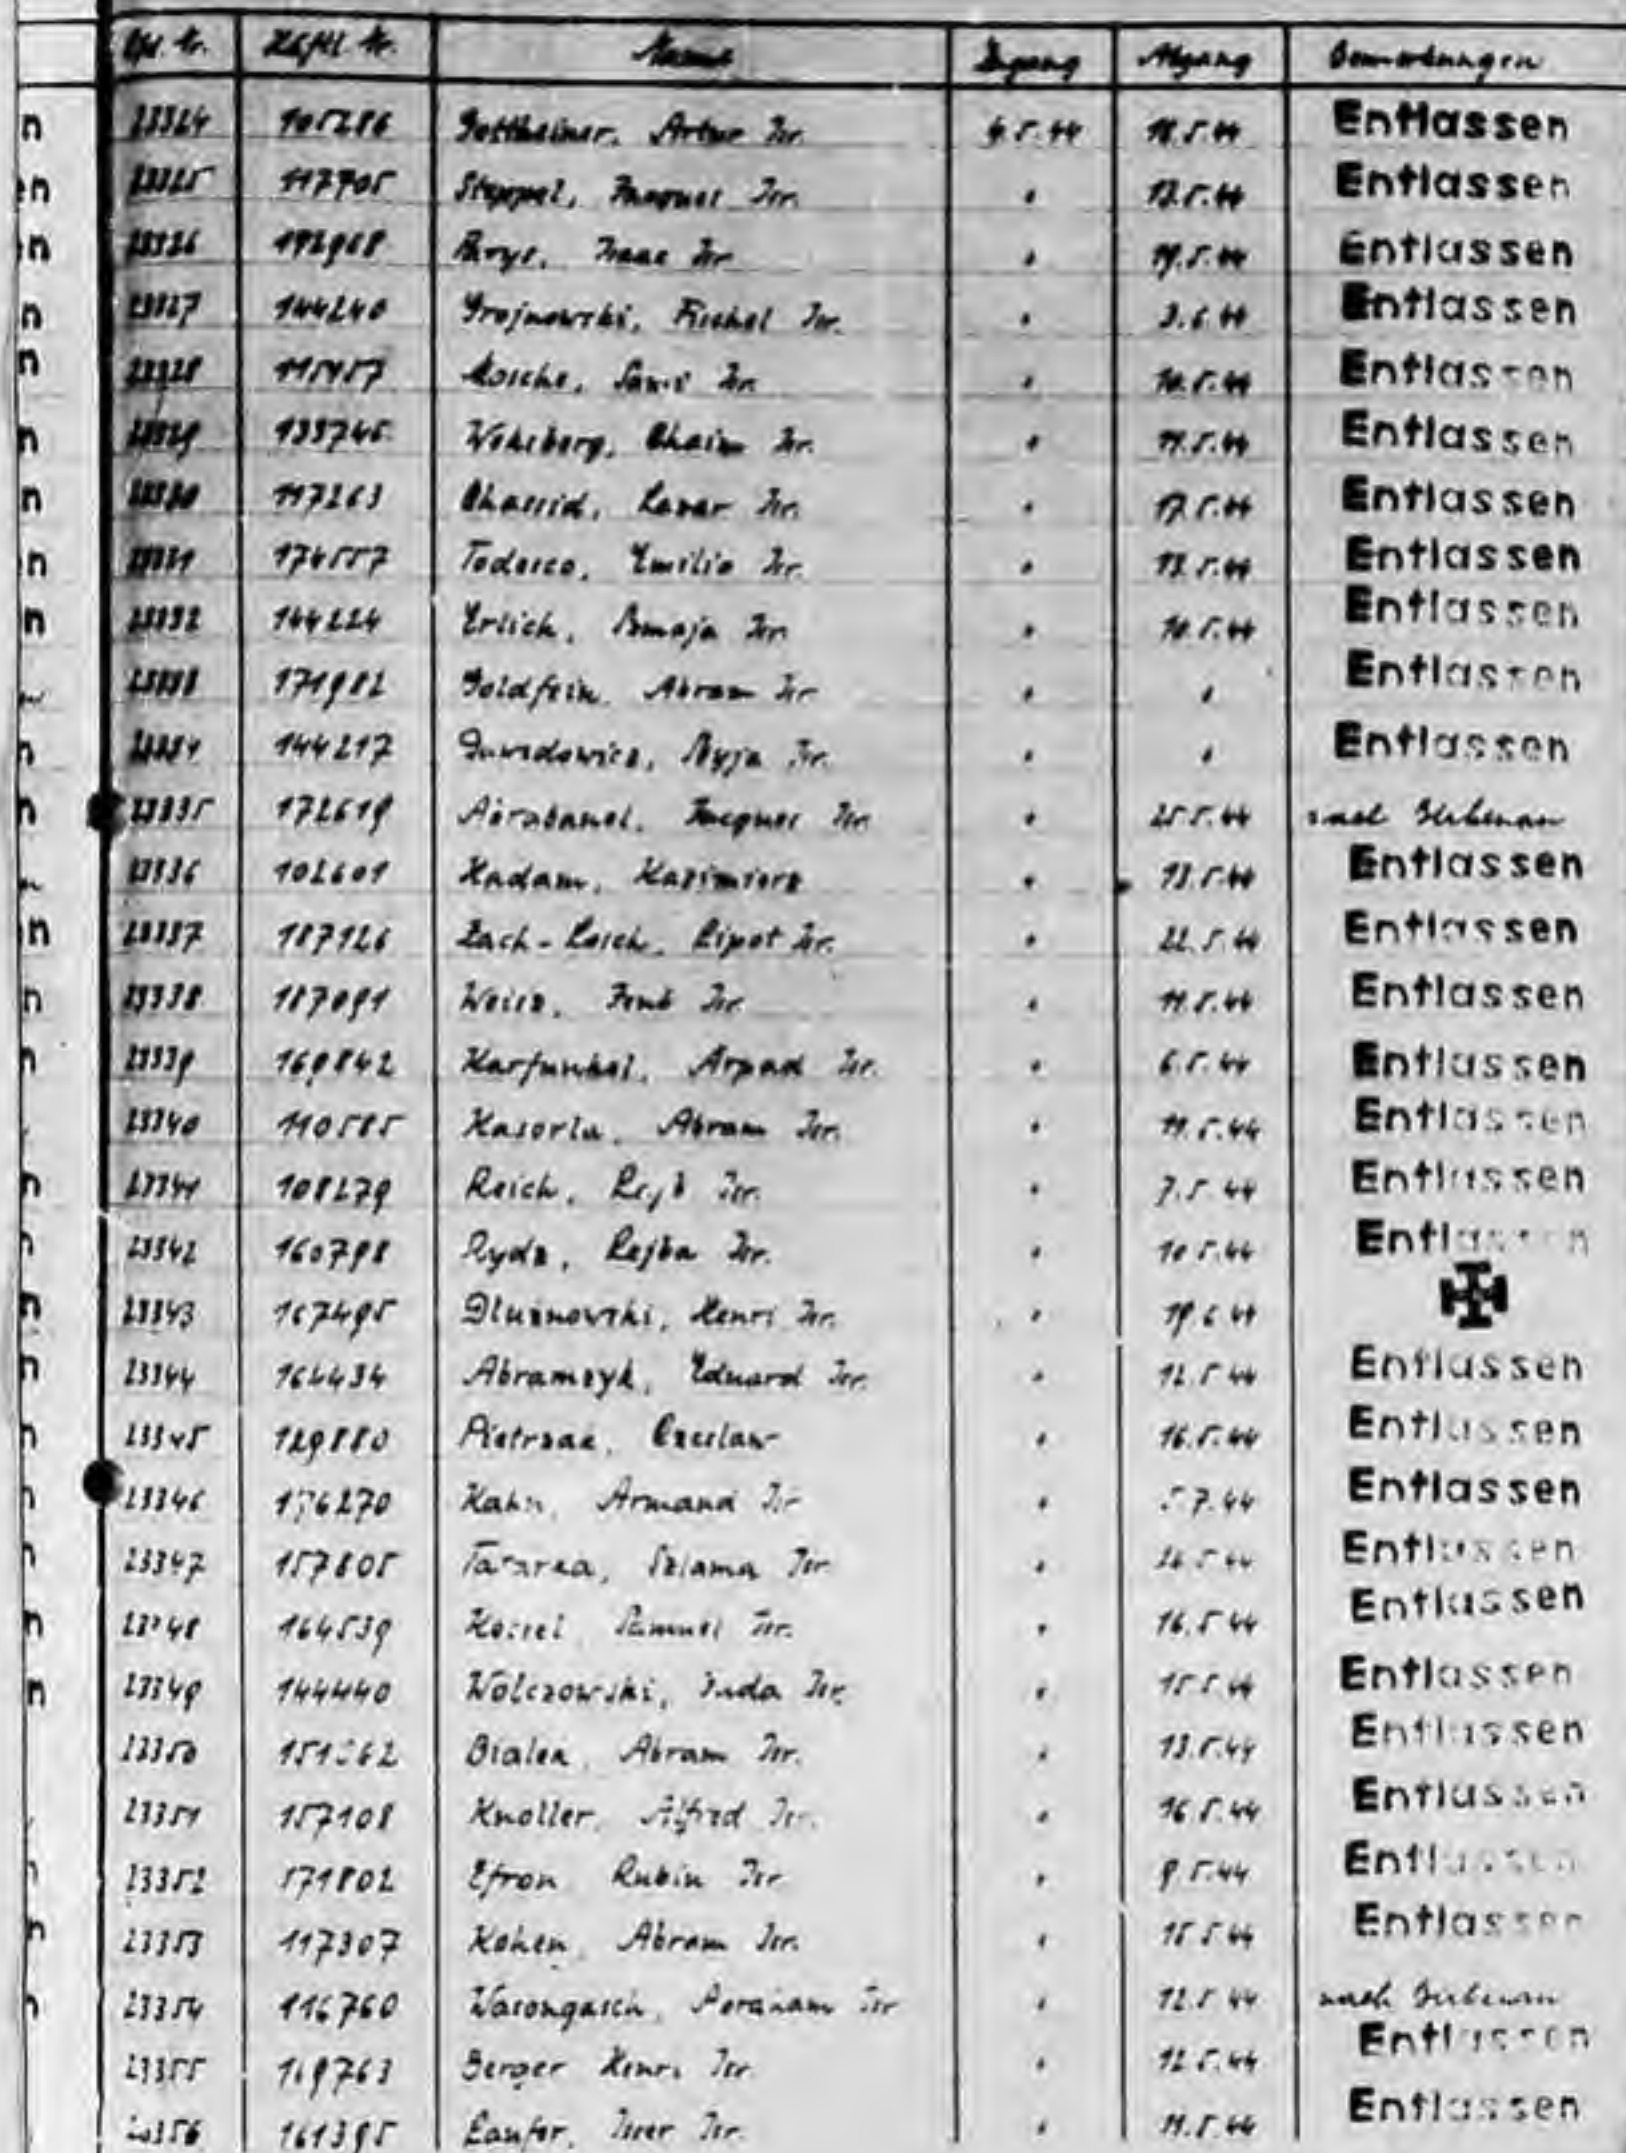 Lfd. Nr. Häftl. Nr. Name Zugang Abgang Bemerkungen
23324 105286 Gottheiner, Artur Isr. 4.5.44 18.5.44 Entlassen
23325 117705 Isr. " 13.5.44 Entlassen
23326 172968 Isaac Isr. " 19.5.44 Entlassen
23327 144240 Grojnowski, Fischel Isr. " 3.6.44 Entlassen
23328 Mosche, Isr. " 10.5.44 Entlassen
23329 Chaim Isr. " 11.5.44 Entlassen
23330 117263 Chassid, Lazar Isr. " 17.5.44 Entlassen
23331 174557 Todesco, Emilio Isr. " 13.5.44 Entlassen
23332 144224 Erlich, Isr. " 10.5.44 Entlassen
23333 171982 Goldfein, Abram Isr. " " Entlassen
23334 144217 Isr. " " Entlassen
23335 172619 Abrabanel, Jacques Isr. " 25.5.44 nach
23336 102601 Kadam, Kazimierz " 13.5.44 Entlassen
23337 187126 Lipot Isr. " 22.5.44 Entlassen
23338 187091 Weisz, Jenö Isr. " 11.5.44 Entlassen
23339 169842 Karfunkel, Arpad Isr. " 6.5.44 Entlassen
23340 110585 Kasorla, Abram Isr. " 11.5.44 Entlassen
23341 108279 Reich, Lejb Isr. " 7.5.44 Entlassen
23342 160798 Rydz, Lejba Isr. " 10.5.44 Entlassen
23343 167495 Dluznowski, Henri Isr. " 19.6.44
23344 164434 Abramzyk, Eduard Isr. " 12.5.44 Entlassen
23345 129880 Pietrzak, Czeslaw " 16.5.44 Entlassen
23346 176270 Kahn, Armand Isr. " 5.7.44 Entlassen
23347 157805 Szlama Isr. " 26.5.44 Entlassen
23348 164539 Samuel Isr. " 16.5.44 Entlassen
23349 144440 Wolczowski, Juda Isr. " 15.5.44 Entlassen
23350 Bialek, Abram Isr. " 13.5.44 Entlassen
23351 157108 Knoller, Alfred Isr. " 16.5.44 Entlassen
23352 171802 Efron Rubin Isr. " 9.5.44 Entlassen
23353 117307 Kohen, Abram Isr. " 15.5.44 Entlassen
23354 116760 Abraham Isr. " 12.5.44 nach
23355 169763 Berger Henri Isr. " 12.5.44 Entlassen
23356 161395 Laufer, Isr. " 11.5.44 Entlassen